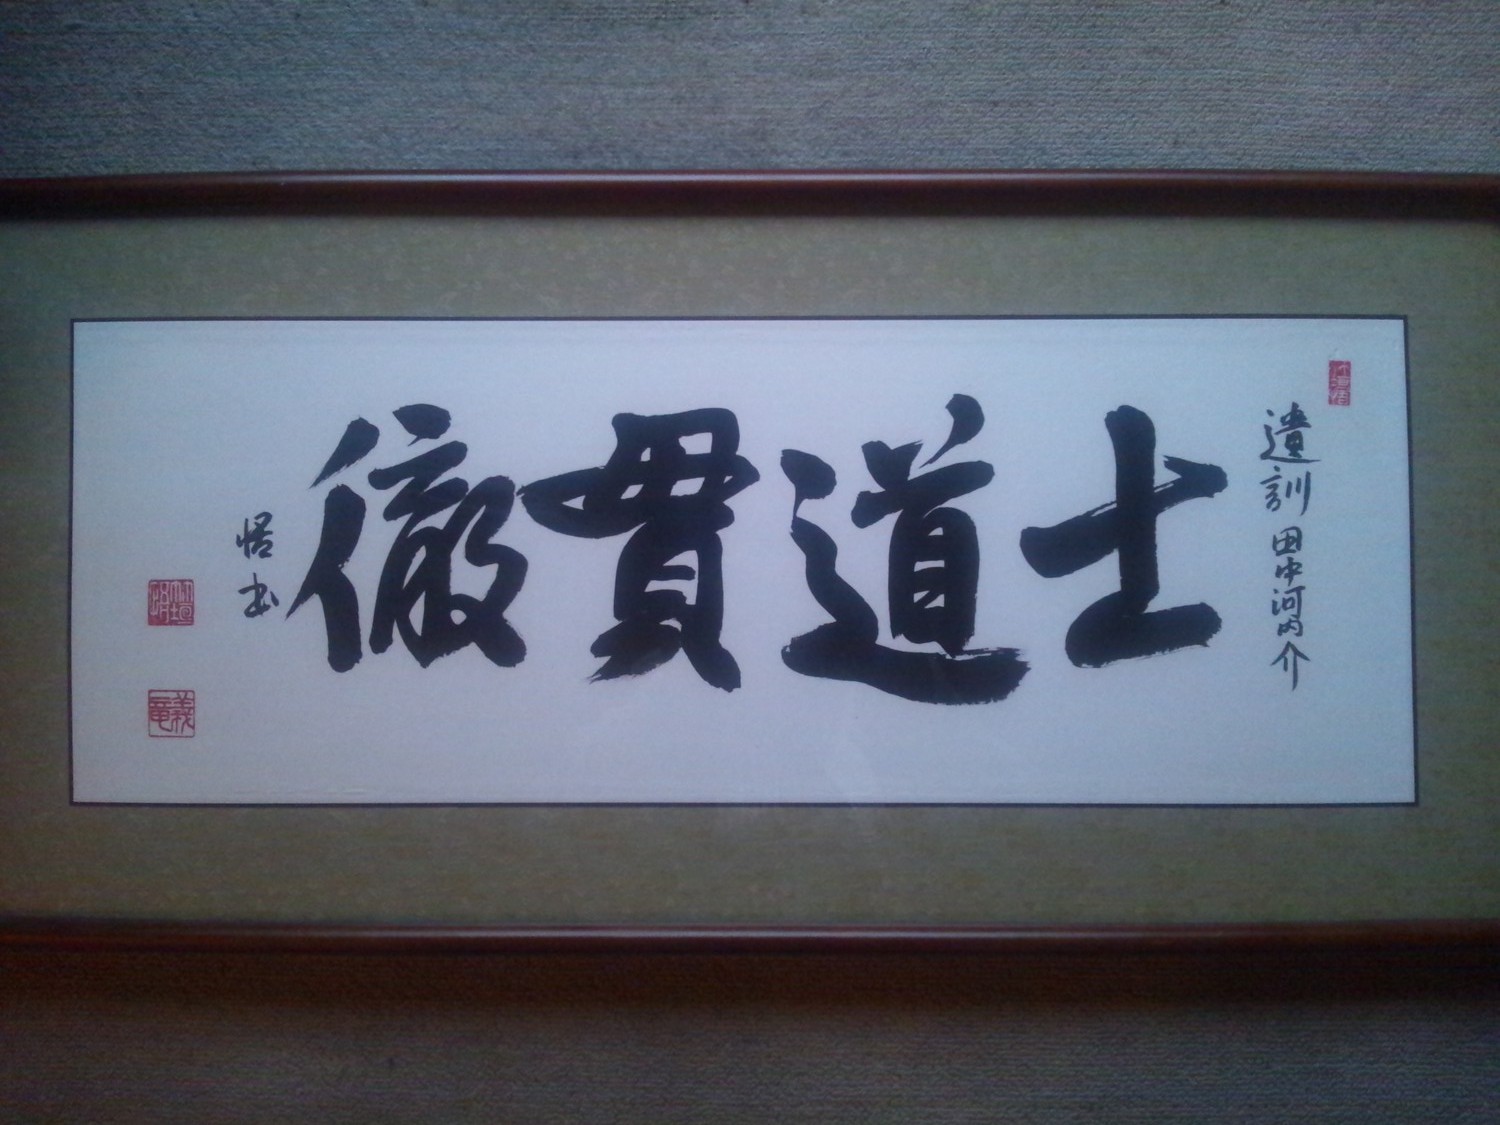 遺訓 田中河内介
士道貫徹
悟書